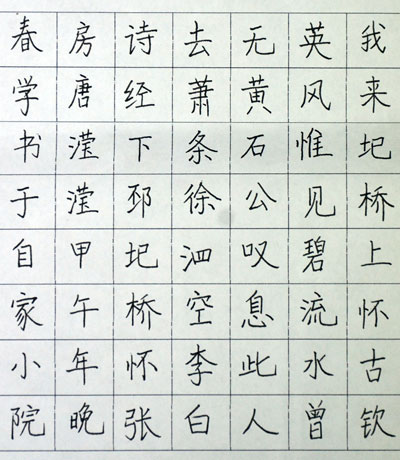 我来圯桥上怀古钦
英风惟见碧流水曾
无黄石公叹息此人
去萧条徐泗空李白
诗经下邳圯桥怀张
房唐滢滢甲午年晚
春学书于自家小院